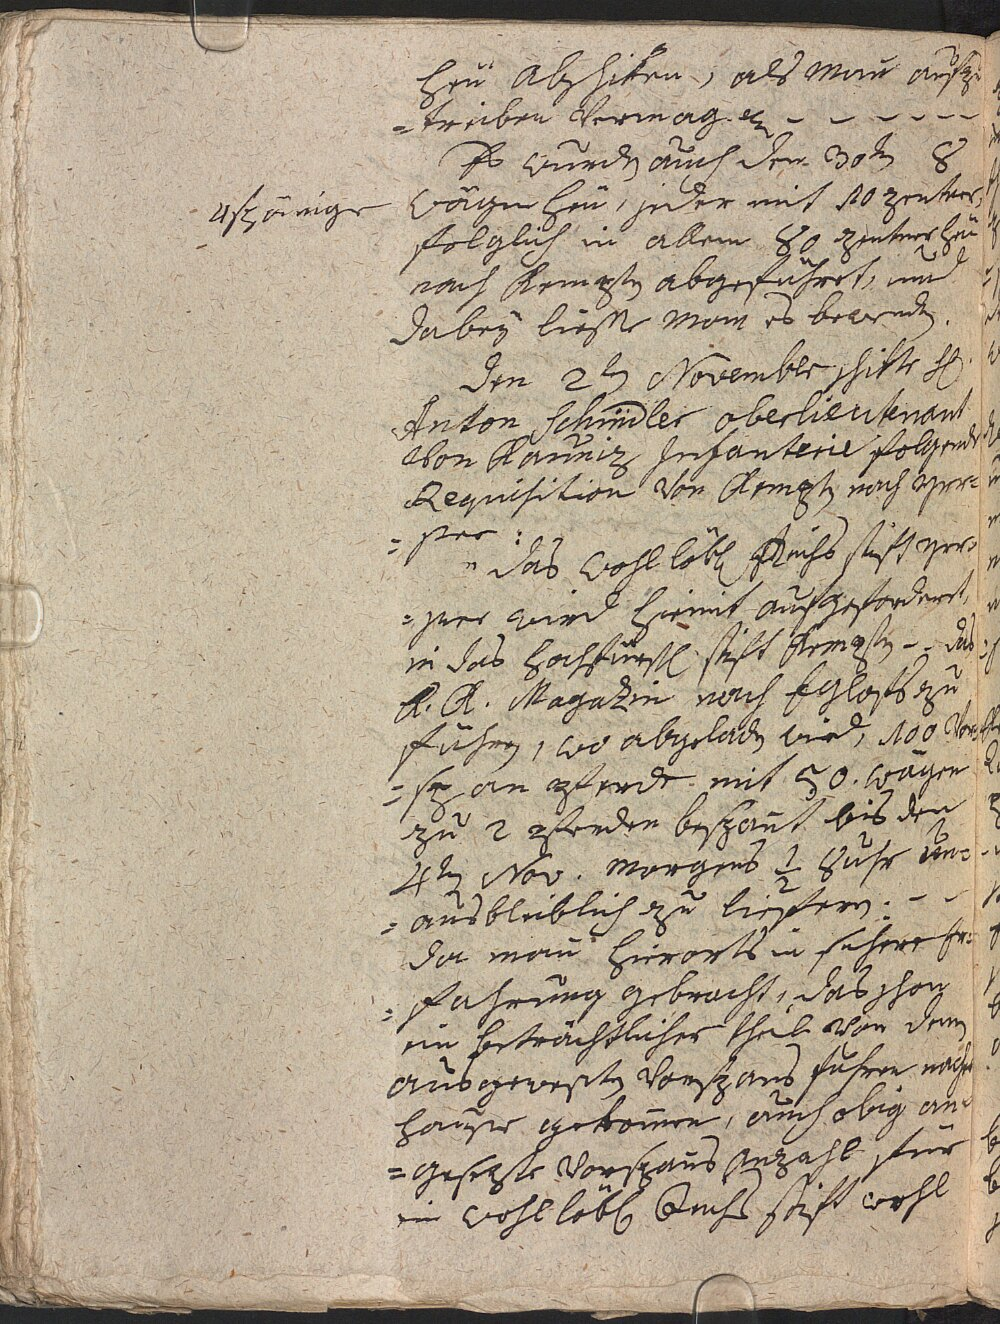 heü abschiken, als man aufzu
=treiben vermag. etc – – – – – –
Es wurdn auch den 30tn 8
4späñige wägen heü, jeder mit 10 zentner,
folglich in allem 80 zentner heü
nach Kemptn abgeführt, und
dabeÿ liesse man es bewendn.
Den 2tn November schikte H.
Anton Schindler oberlieutenant
von Kauniz Infanterie folgende
Requisition von Kemptn nach
:
" das wohl löbl. Reichs stift
wird hiemit aufgefordert,
in das hochfürstl. stift Kemptn – . das
K. K. Magazin nach Eglofs zu
führn, wo abgeladn wird, 100 Vor
=span pferde mit 50. wägen
zu 2 pferden bespañt bis den
4tn Nov. morgens ½ 8 uhr un=
=ausbleiblich zu liefern: – –
da man hierorts in sichere Er=
=fahrung gebracht, das schon
ein beträchtlicher theil von denn
Vorspans fuhren nacher
hause gekom̄en, auch obig an=
=gesezte Vorspans Anzahl für
ein wohl löbl. Reichs stift wohl